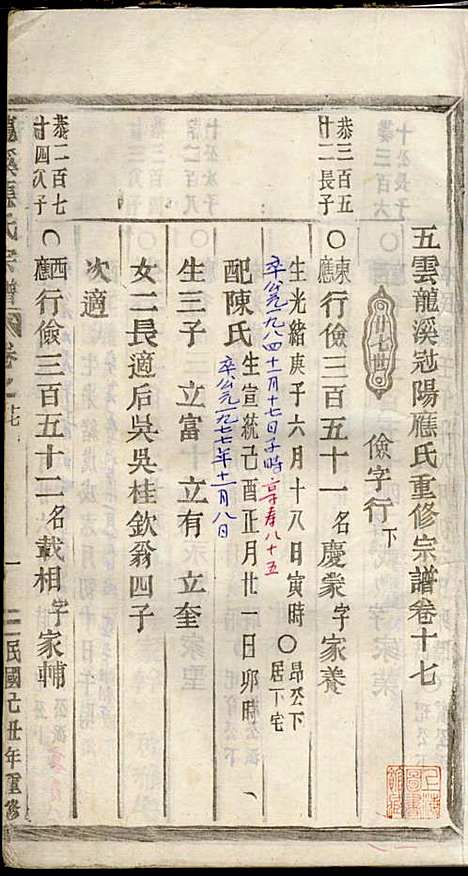 五雲龍溪冠陽應氏重修宗譜卷十七
廿七世
儉字行下
恭三百五
廿二長子
○東應行儉三百五十一名慶棠字家養
生光緒庚子六月十八日寅時○昂公下居下宅
卒公元一九八四十一月十七日子時享寿八十五
配陳氏生宣統己酉正月廿一日卯時
卒公元一九七七年十一月八日
生三子 立富 立有 立奎
女二長適后吳吳桂欽翁四子
次適
恭二百七
廿四次子
○西應行儉三百五十二名載相字家輔
溪應氏宗譜
卷之十七
一
民國己丑年重修
上海圖書館藏